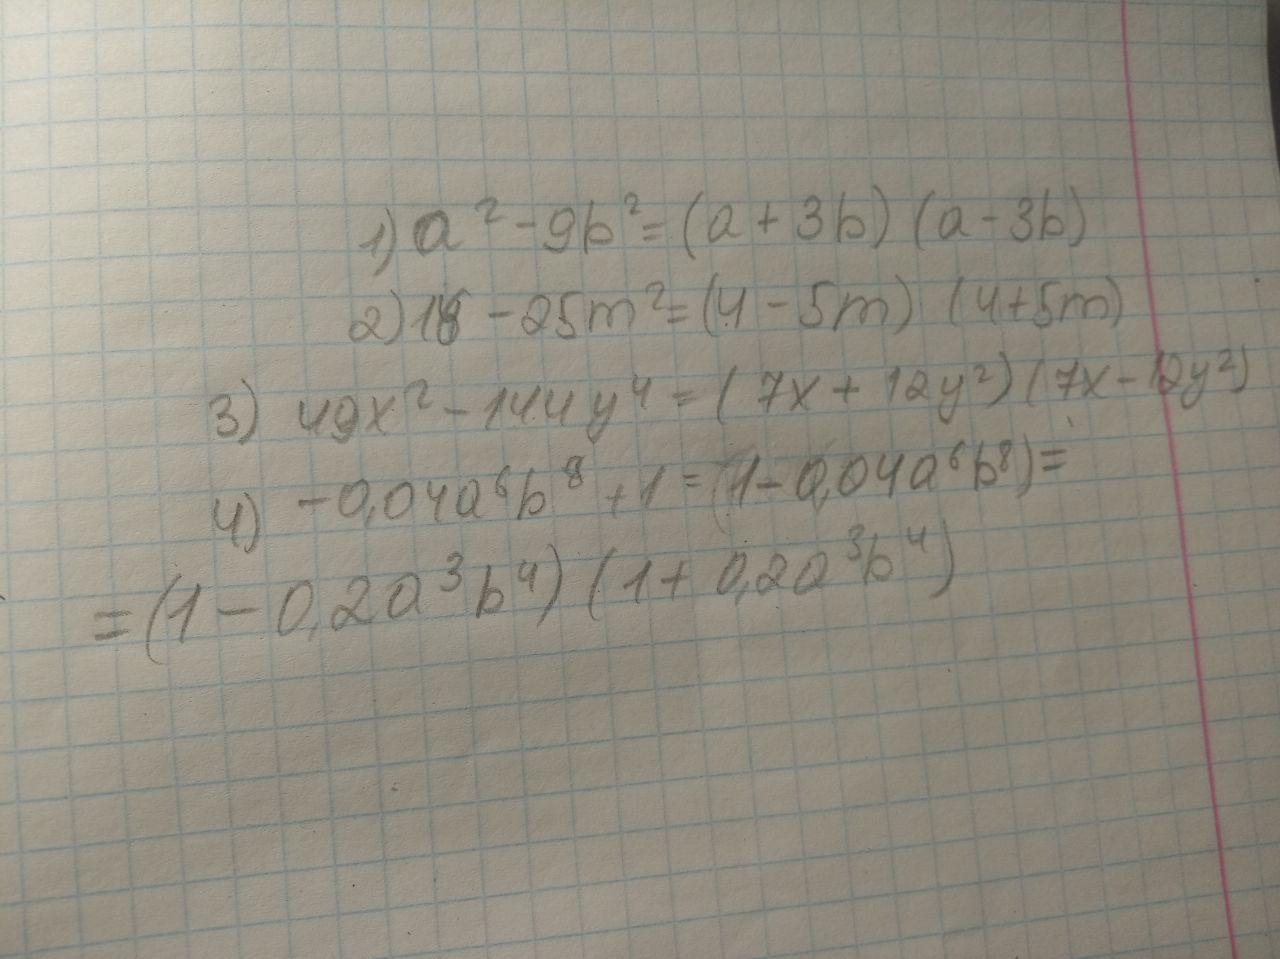 1) a² - 9b² = (a + 3b) (a - 3b)
2) 16 - 25m² = (4 - 5m) (4 + 5m)
3) 49x² - 144y⁴ = (7x + 12y²) (7x - 12y²)
4) -0,04a⁶b⁸ + 1 = (1 - 0,04a⁶b⁸) =
= (1 - 0,2a³b⁴) (1 + 0,2a³b⁴)